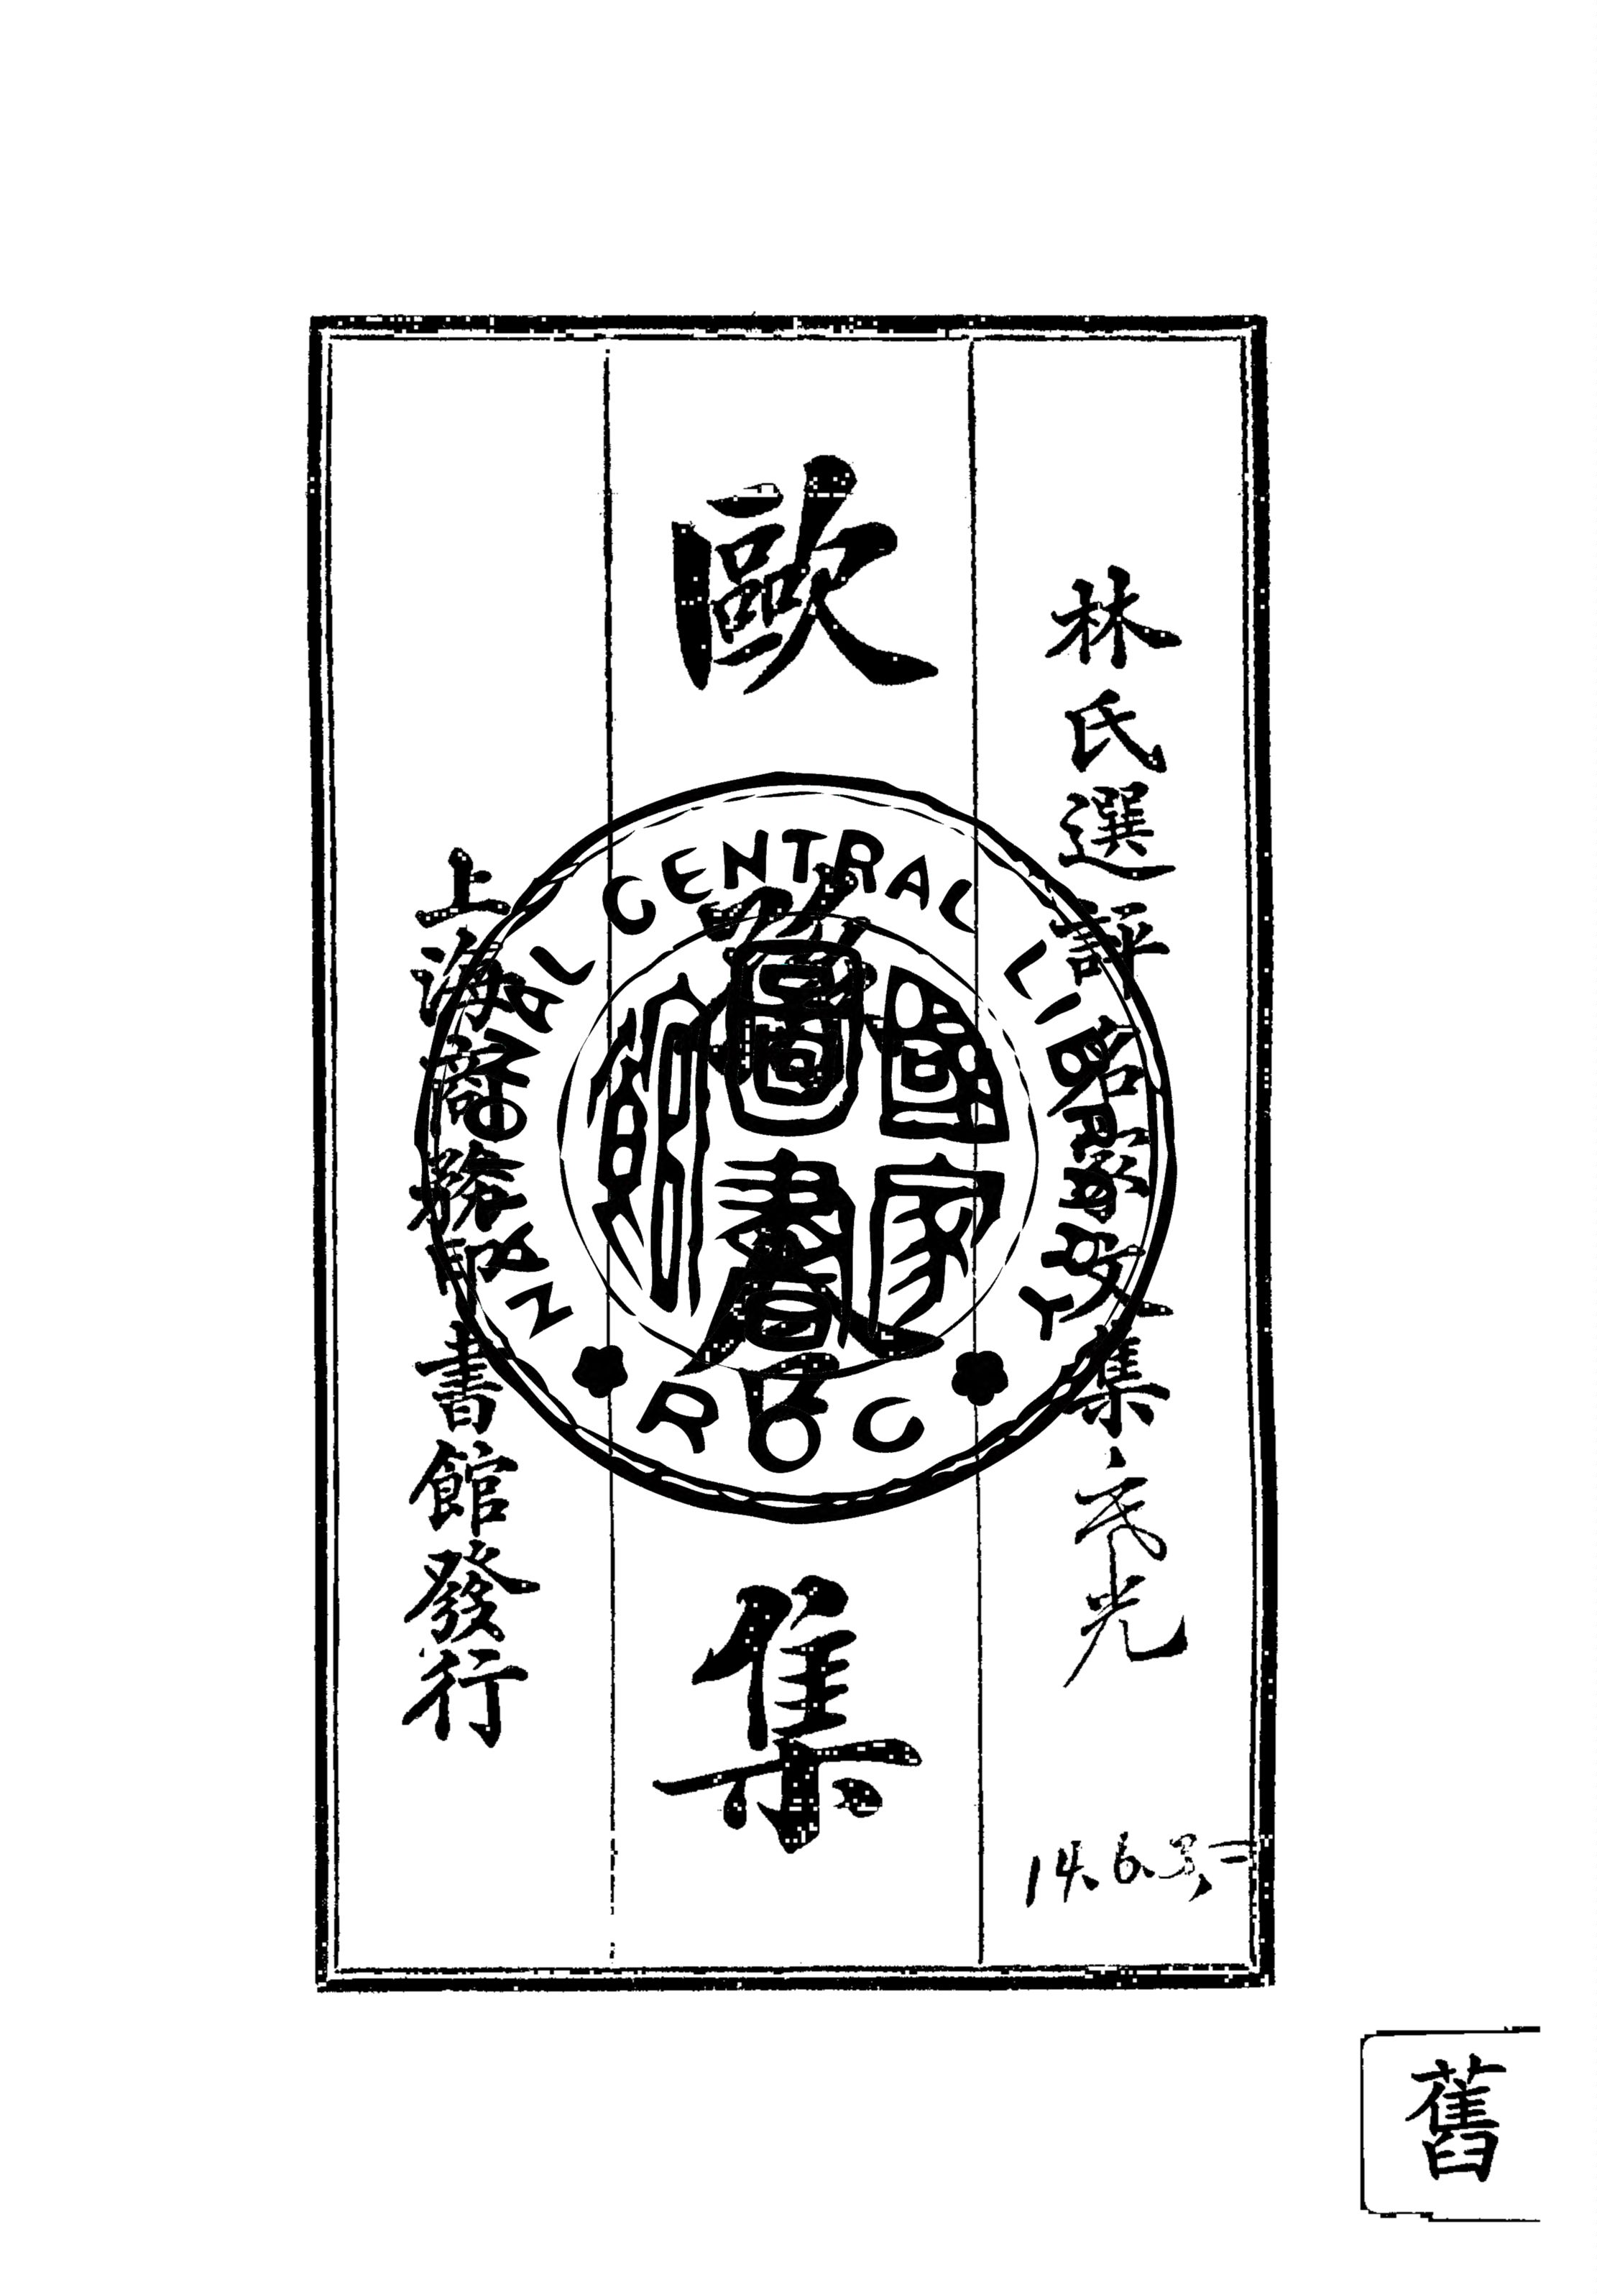 林氏選評名家文集
歐
集
上海商務印書館發行
NATIONAL CENTRAL LIBRARY
ROC
國家
圖書
館
舊